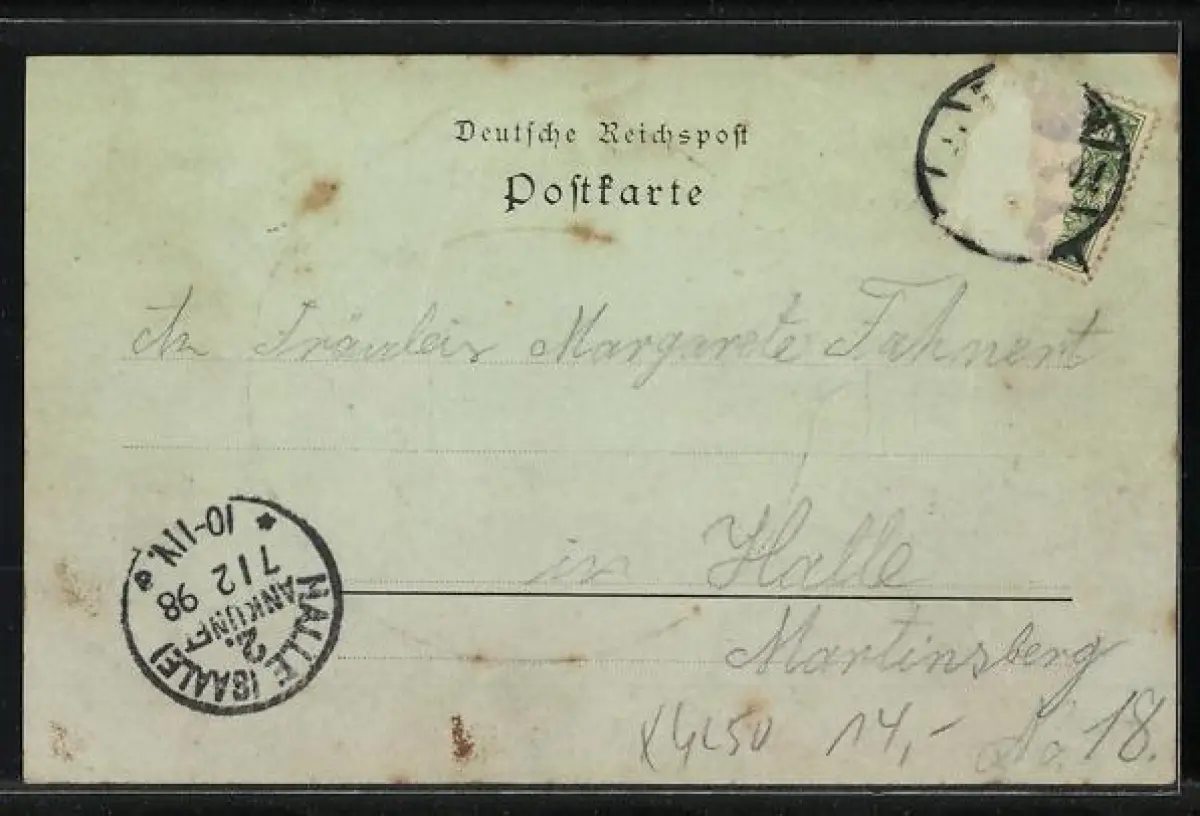 Deutsche Reichspost
Postkarte
An Fräulein Margarete Fahnert
in Halle
Martinsberg
No. 18.
14,-
HALLE (SAALE)
ANKUNFT
2.
7 12 98
10-11N.